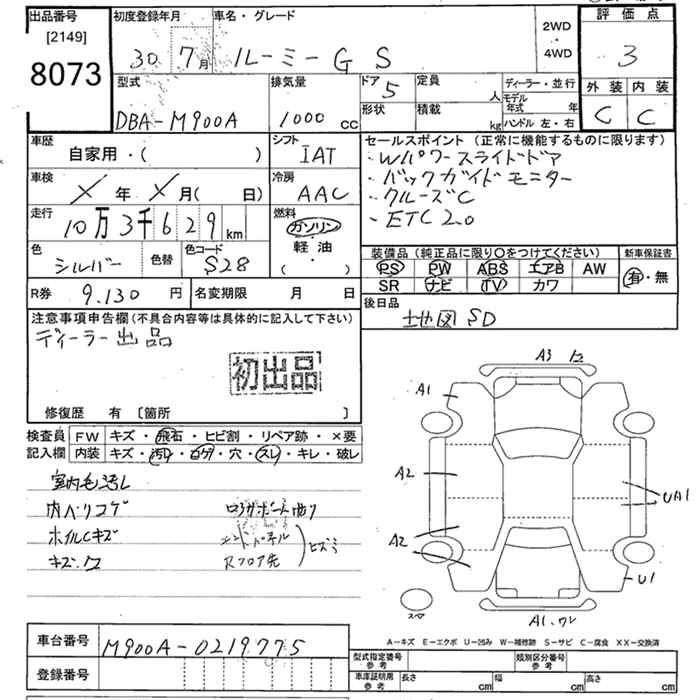 出品番号 初度登録年月 車名・グレード 2WD・4WD 評価点
[2149]
8073
30 7月 ルーミー G S 3
型式 排気量 ドア 5 定員 人 ディーラー・並行 外装 内装
DBA-M900A 1000 cc 形状 積載 kg モデル年式 年 C C
ハンドル 左・右
車歴 シフト セールスポイント (正常に機能するものに限ります)
自家用・( ) IAT ・Wパワースライドドア
車検 冷房 ・バックガイドモニター
X 年 X 月( 日) AAC ・クルーズC
走行 燃料 ・ETC2.0
10万3千629km ガソリン・軽油・( )
色 色替 色コード 装備品 (純正品に限り○をつけてください) 新車保証書
シルバー S28 PS PW ABS エアB AW 有・無
SR ナビ TV カワ
R券 9.130 円 名変期限 月 日 後日品
地図SD
注意事項申告欄(不具合内容等は具体的に記入して下さい)
ディーラー出品
初出品
修復歴 有 [箇所 ]
検査員 FW キズ・飛石・ヒビ割・リペア跡・×要
記入欄 内装 キズ・汚レ・コゲ・穴・スレ・キレ・破レ
室内毛汚レ
内ハリコゲ コアサポート曲り
ホイルCキズ エンドパネル
Rフロア先
ヒズミ
A3
A1
A2
UA1
A2
U1
スペア
A1
A－キズ E－エクボ U－凹み W－補修跡 S－サビ C－腐食 XX－交換済
車台番号 M900A-0219775
型式指定番号 参考 類別区分番号 参考
登録番号 車庫証明用 参考 長さ cm 幅 cm 高さ cm